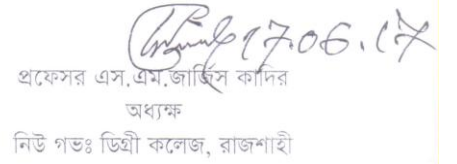 17.06.17
প্রফেসর এস.এম.জার্জিস কাদির
অধ্যক্ষ
নিউ গভঃ ডিগ্রী কলেজ, রাজশাহী